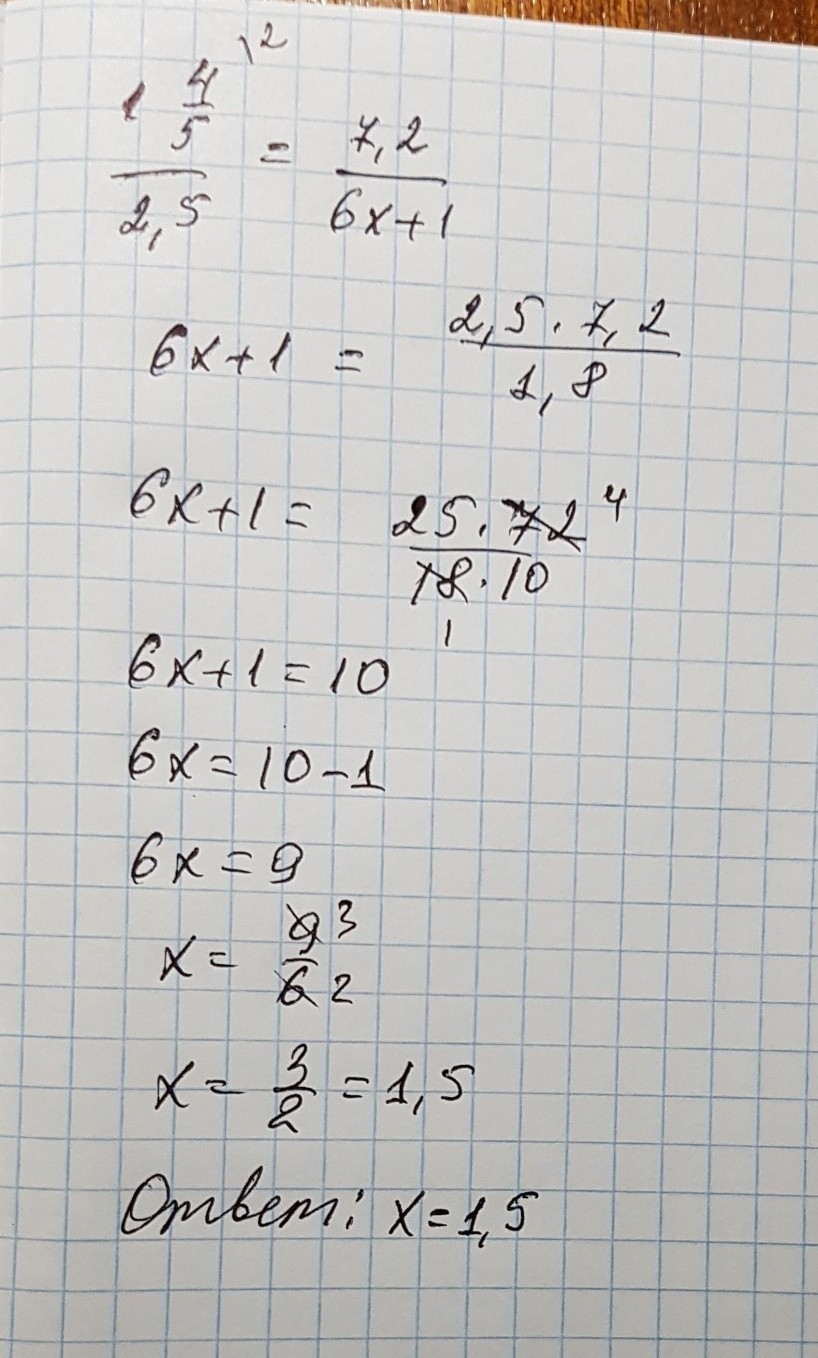 1 4/5 \2 / 2,5 = 7,2 / 6x+1
6x+1 = 2,5 · 7,2 / 1,8
6x+1 = 25 · 72 4 / 18 · 10 1
6x+1 = 10
6x = 10 - 1
6x = 9
x = 9 3 / 6 2
x = 3/2 = 1,5
Ответ: x = 1,5